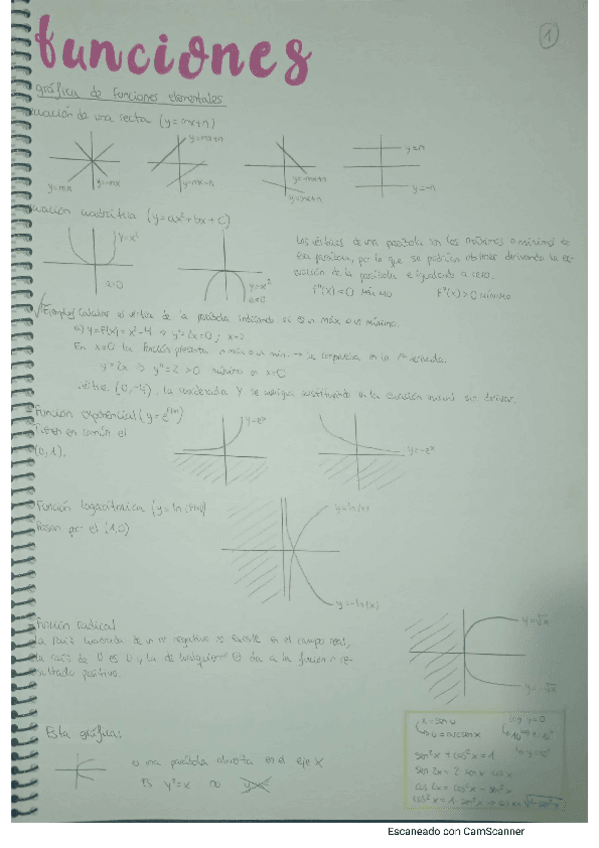 1
funciones
gráfica de funciones elementales
uación de una recta (y=mx+n)
y=mx+n
y=n
y=mx
y=-mx
y=mx-n
y=-mx+n
y=-n
uación cuadrática (y=ax²+bx+c)
y=x²
a>0
y=-x²
a<0
Los vértices de una parábola son los máximos o mínimos de
esa parábola, por lo que se podrían obtener derivando la ec-
uación de la parábola e igualando a cero.
f''(x)<0 máximo f''(x)>0 mínimo
Ejemplo Calcular el vértice de la parábola indicando si es un máx o un mínimo.
a) y=f(x)=x²-4 → y'=2x=0; x=
En x=0 la función presenta un máx o un mín. → se comprueba en la 2ª derivada.
y'=2x → y''=2>0 mínimo en x=0
vértice (0,-4), la coordenada Y se averigua sustituyendo en la función inicial sin derivar.
Función exponencial (y=
Tienen en común el
(0,1).
y=e^x
y=-e^x
Función logarítmica (y=ln
Pasan por el (1,0)
y=ln(x)
y=-ln(x)
Función radical
La raíz cuadrada de un nº negativo no existe en el campo real,
la raíz de 0 es 0 y la de cualquier ⊕ da a la función re-
sultado positivo.
y=√x
y=-√x
Esta gráfica:
es una parábola abierta en el eje X
Es y²=x no
x=sen u
u=arcsen x
log y=0
sen²x+cos²x=1
sen 2x=2 sen x cos x
cos 2x=cos²x-sen²x
cos²x=1-sen²x
Escaneado con CamScanner